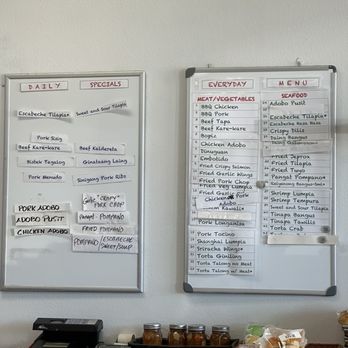 DAILY SPECIALS
Escabeche Tilapia
Sweet and Sour Tilapia
Beef Kare-kare
Beef Kaldereta
Bistek Tagalog
Ginataang Laing
Pork Menudo
Sinigang Pork Ribs
PORK ADOBO
Garlic CRISPY PORK CHOP
ADOBO PUSIT
Pangat POMPANO
CHICKEN ADOBO
FRIED POMPANO
POMPANO/ESCABECHE
SWEET/SOUP
EVERYDAY
MEAT/VEGETABLES
BBQ Chicken
BBQ Pork
Beef Tapa
Beef Kare-kare
Bopiz
Chicken Adobo
Dinuguan
Embotido
Fried Crispy Lumpia
Fried Garlic Wings
Fried Pork Chop
Fried Veg Lumpia
Chicken Pork Adobo
Pork Longanisa
Pork Tocino
Shanghai Lumpia
Sriracha Wings
Torta Giniling
Torta Talong no Meat
Torta Talong w/ Meat
MENU
SEAFOOD
Adobo Pusit
Escabeche Tilapia
Crispy Dilis
Daing Bangus
Fried Tilapia
Fried Tuyo
Pangat Pompano
Shrimp Lumpia
Shrimp Tempura
Sweet and Sour Tilapia
Tinapa Bangus
Tinapa Tawilis
Torta Crab